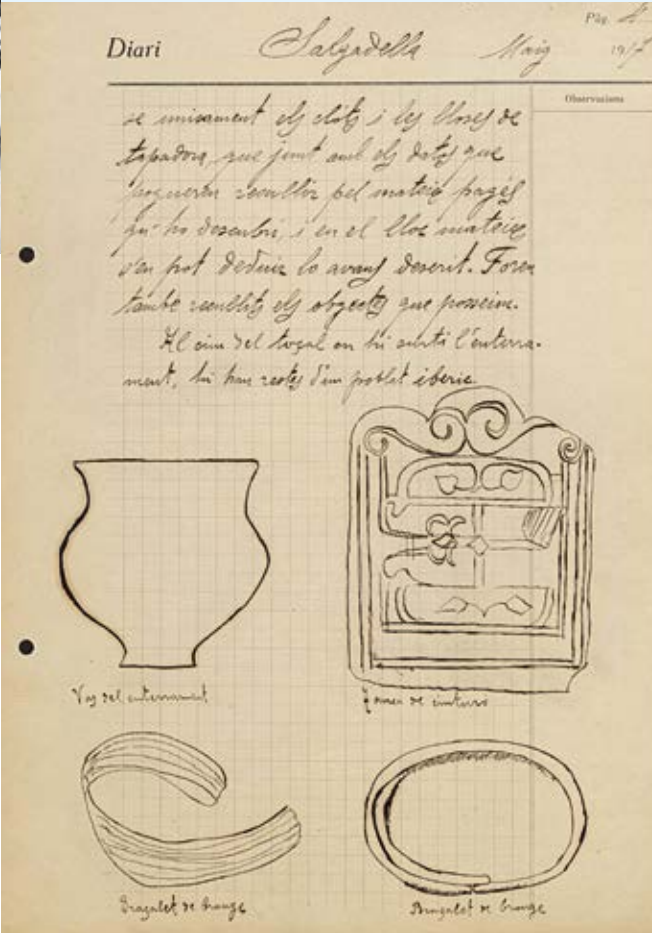 Pàg. 4
Diari Salzadella Maig 1917
Observacions
se unicament els clots i les lloses de
tapadora, que junt amb els datos que
pogueren recullir pel mateix pagés
qu' ho descubrí, i en el lloc mateix
s'en pot deduir lo avans descrit. Foren
tambe recullits els objectes que posseim.
Al cim del tossal on hi surti l'enterra-
ment, hi han restes d'un poblat iberic
Vas del enterrament
de cinturo
Braçalet de bronze
Braçalet de bronze